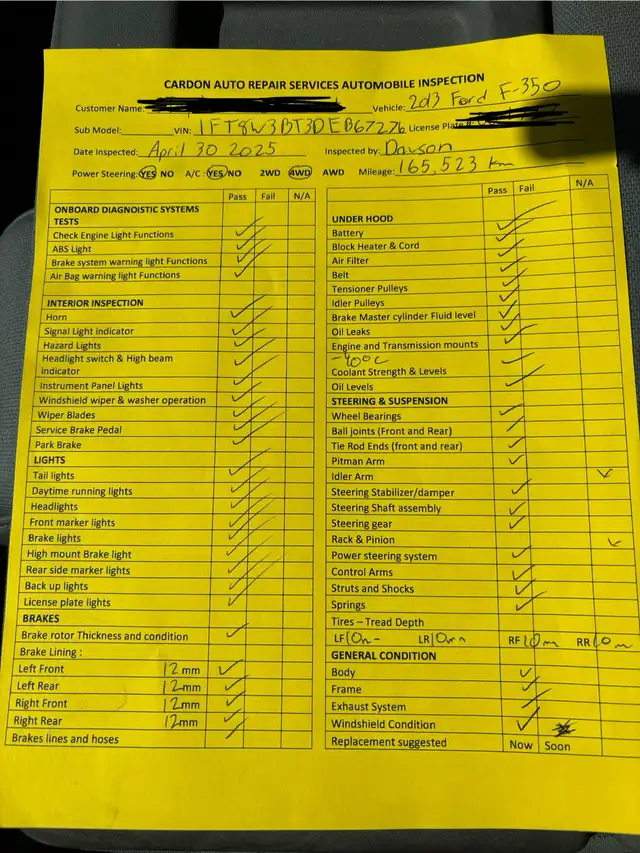 CARDON AUTO REPAIR SERVICES AUTOMOBILE INSPECTION
Customer Name: Vehicle: 2013 Ford F-350
Sub Model: VIN: 1FT8W3BT3DEB67276 License Plate #
Date Inspected: April 30 2025 Inspected by: Dawson
Power Steering: YES NO A/C: YES/NO 2WD 4WD AWD Mileage: 165,523 km
Pass Fail N/A
ONBOARD DIAGNOSTIC SYSTEMS
TESTS
Check Engine Light Functions
ABS Light
Brake system warning light Functions
Air Bag warning light Functions
INTERIOR INSPECTION
Horn
Signal Light indicator
Hazard Lights
Headlight switch & High beam
indicator
Instrument Panel Lights
Windshield wiper & washer operation
Wiper Blades
Service Brake Pedal
Park Brake
LIGHTS
Tail lights
Daytime running lights
Headlights
Front marker lights
Brake lights
High mount Brake light
Rear side marker lights
Back up lights
License plate lights
BRAKES
Brake rotor Thickness and condition
Brake Lining :
Left Front 12 mm
Left Rear 12mm
Right Front 12mm
Right Rear 12mm
Brakes lines and hoses
Pass Fail N/A
UNDER HOOD
Battery
Block Heater & Cord
Air Filter
Belt
Tensioner Pulleys
Idler Pulleys
Brake Master cylinder Fluid level
Oil Leaks
Engine and Transmission mounts
-40°C
Coolant Strength & Levels
Oil Levels
STEERING & SUSPENSION
Wheel Bearings
Ball joints (Front and Rear)
Tie Rod Ends (front and rear)
Pitman Arm
Idler Arm
Steering Stabilizer/damper
Steering Shaft assembly
Steering gear
Rack & Pinion
Power steering system
Control Arms
Struts and Shocks
Springs
Tires – Tread Depth
LF 10m LR 10m RF 10m RR 10m
GENERAL CONDITION
Body
Frame
Exhaust System
Windshield Condition
Replacement suggested Now Soon